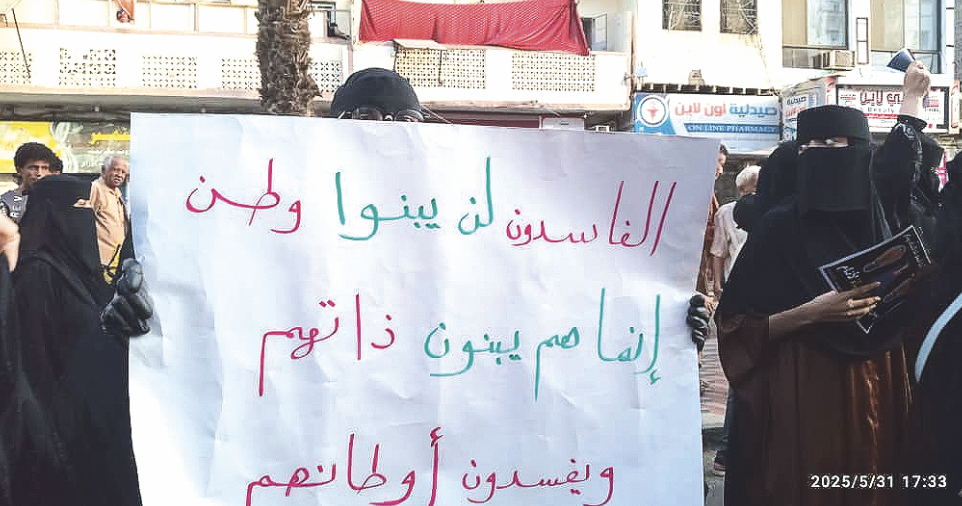 صيدلية اون لاين
ON LINE PHARMACY
صيدلية
الفاسدون لن يبنوا وطن
إنما هم يبنون ذاتهم
ويفسدون أوطانهم
2025/5/31 17:33